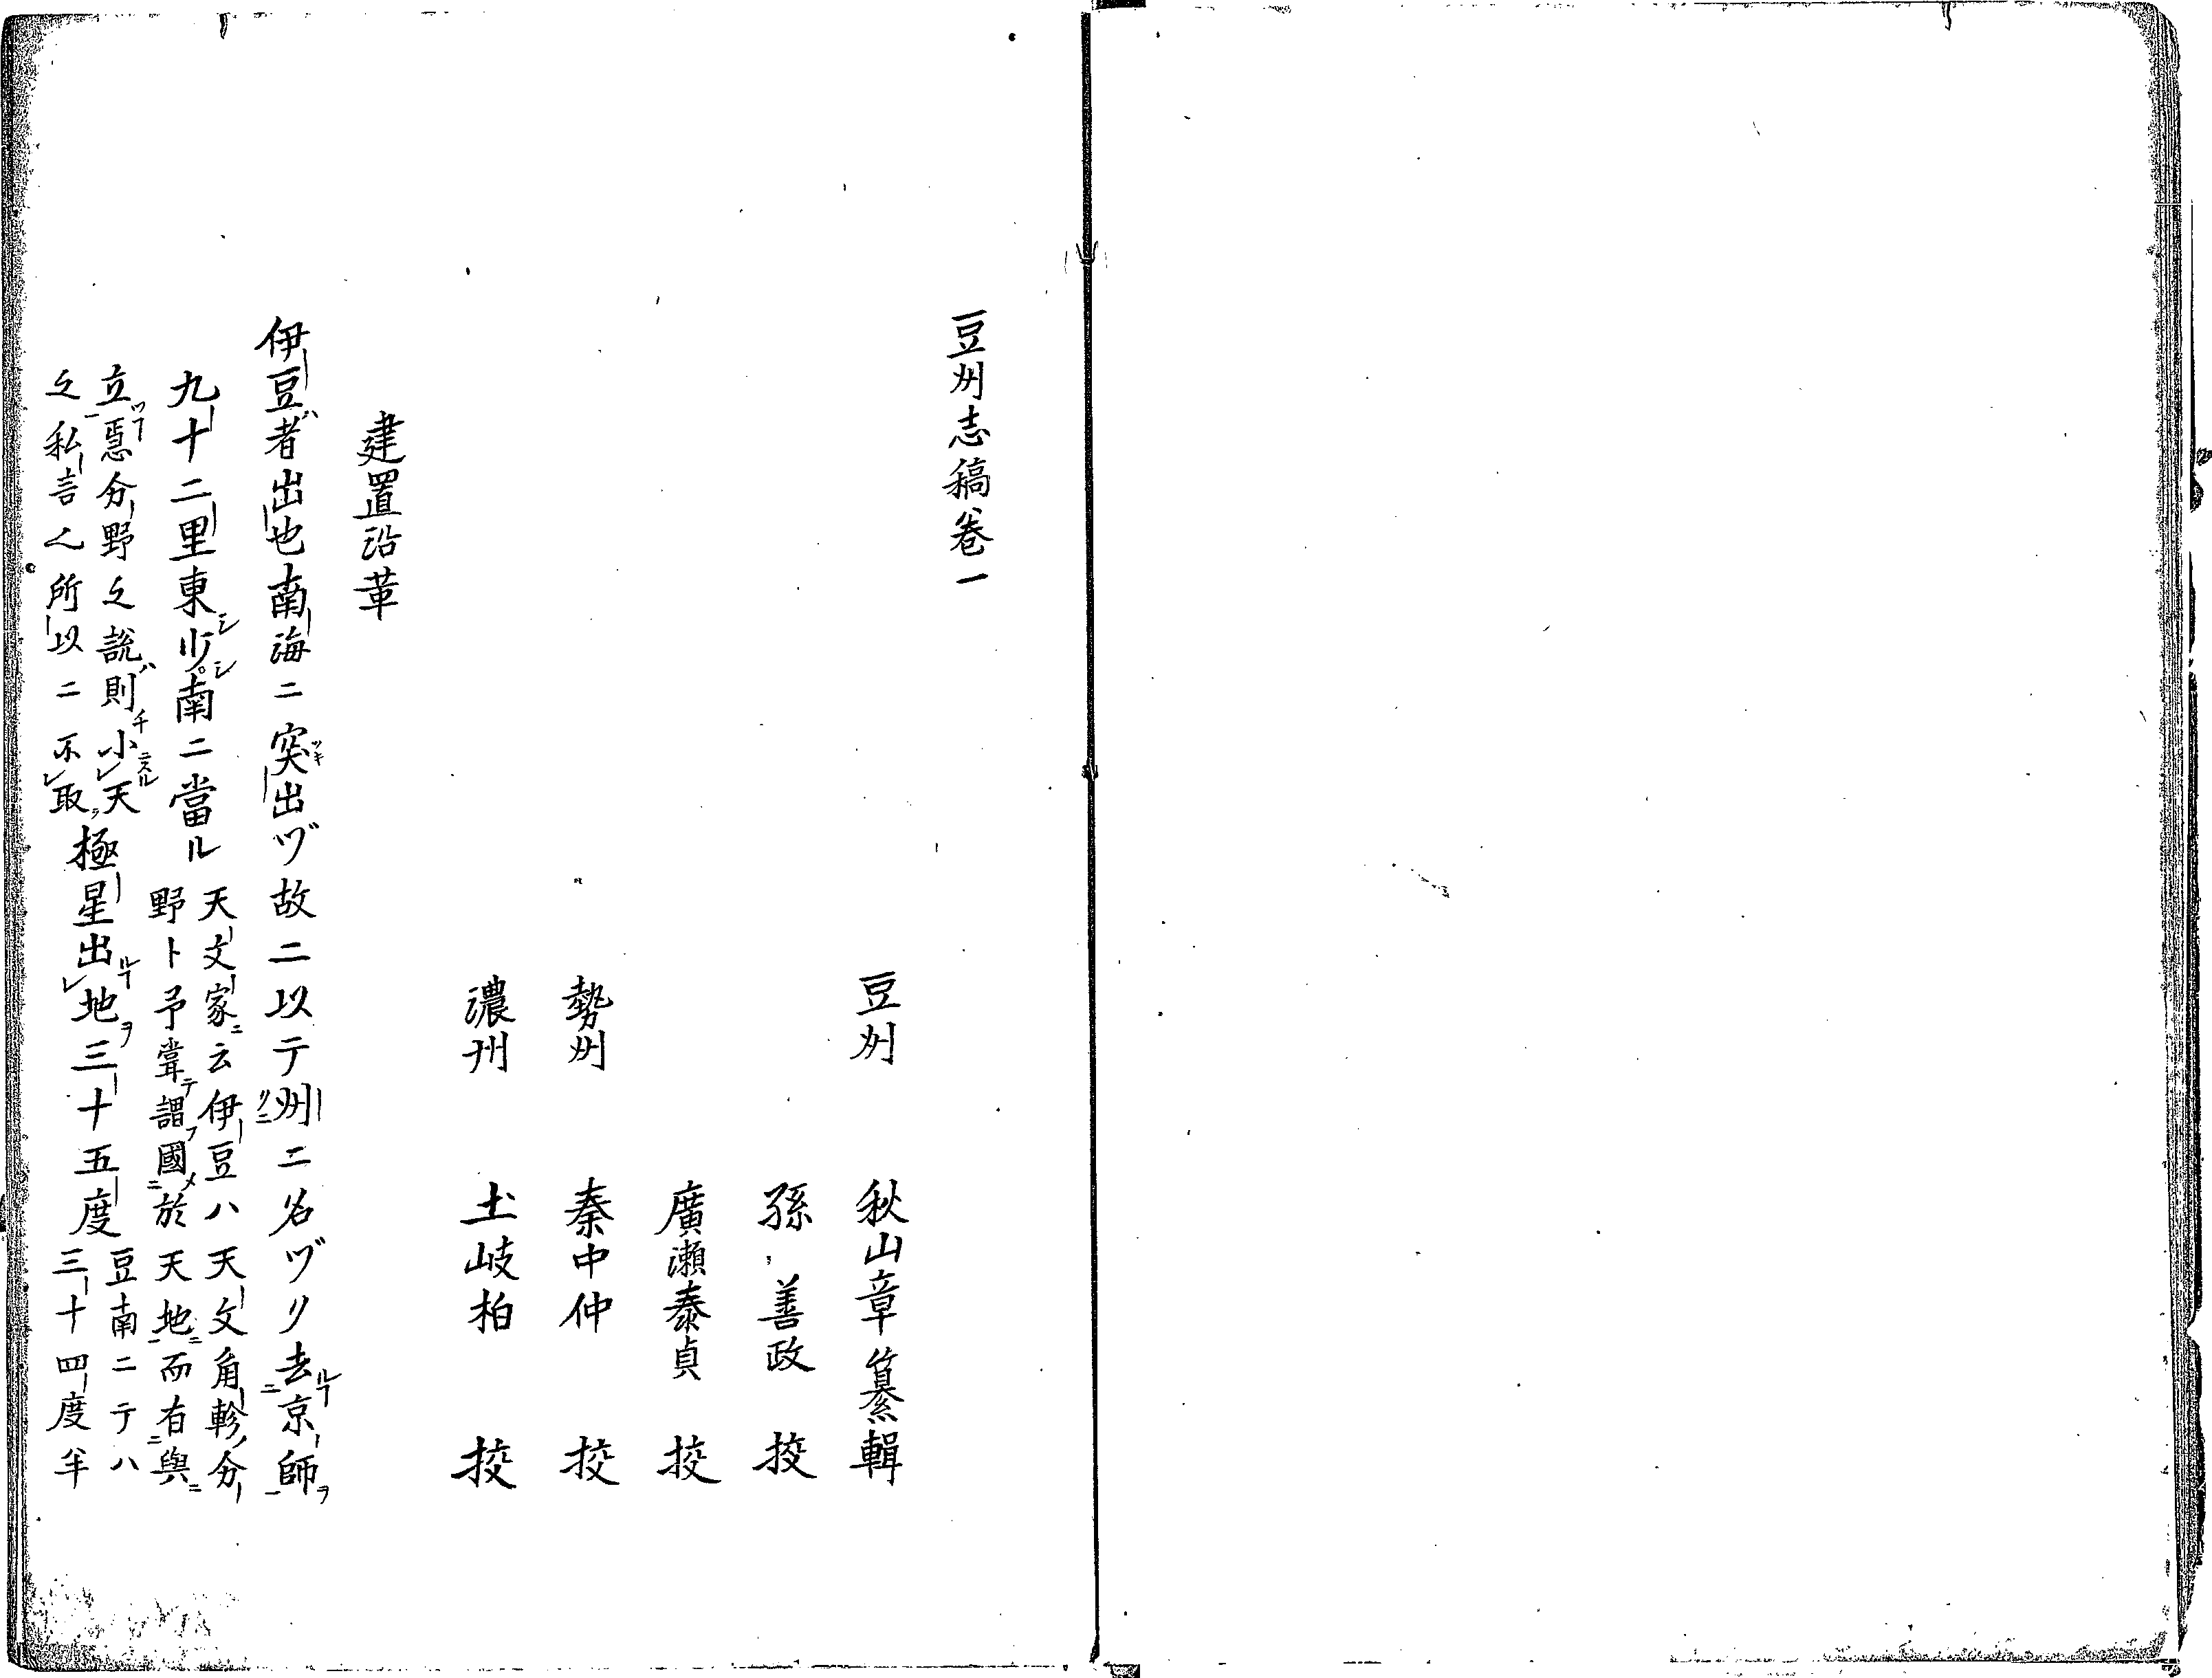 豆州志稿卷一
豆州　秋山章纂輯
孫　善政　挍
廣瀬泰貞　挍
勢州　秦中仲　挍
濃州　土岐柏　挍
建置沿革
伊豆者ハ出也南海ニ突ツキ出ヅ故ニ以テ州ニ名ヅク去ルヿ京師ヲ
九十二里東シ少シ南ニ當ル
天文家ニ云伊豆ハ天文角軫ノ分
野ト予甞テ謂フ國メ於天地ニ而有與
立ツヿ焉分野之說ハ則チ小ニスル天
之私言ム所以ニ不取
極星出ルヿ地ヲ三十五度
豆南ニテハ
三十四度半